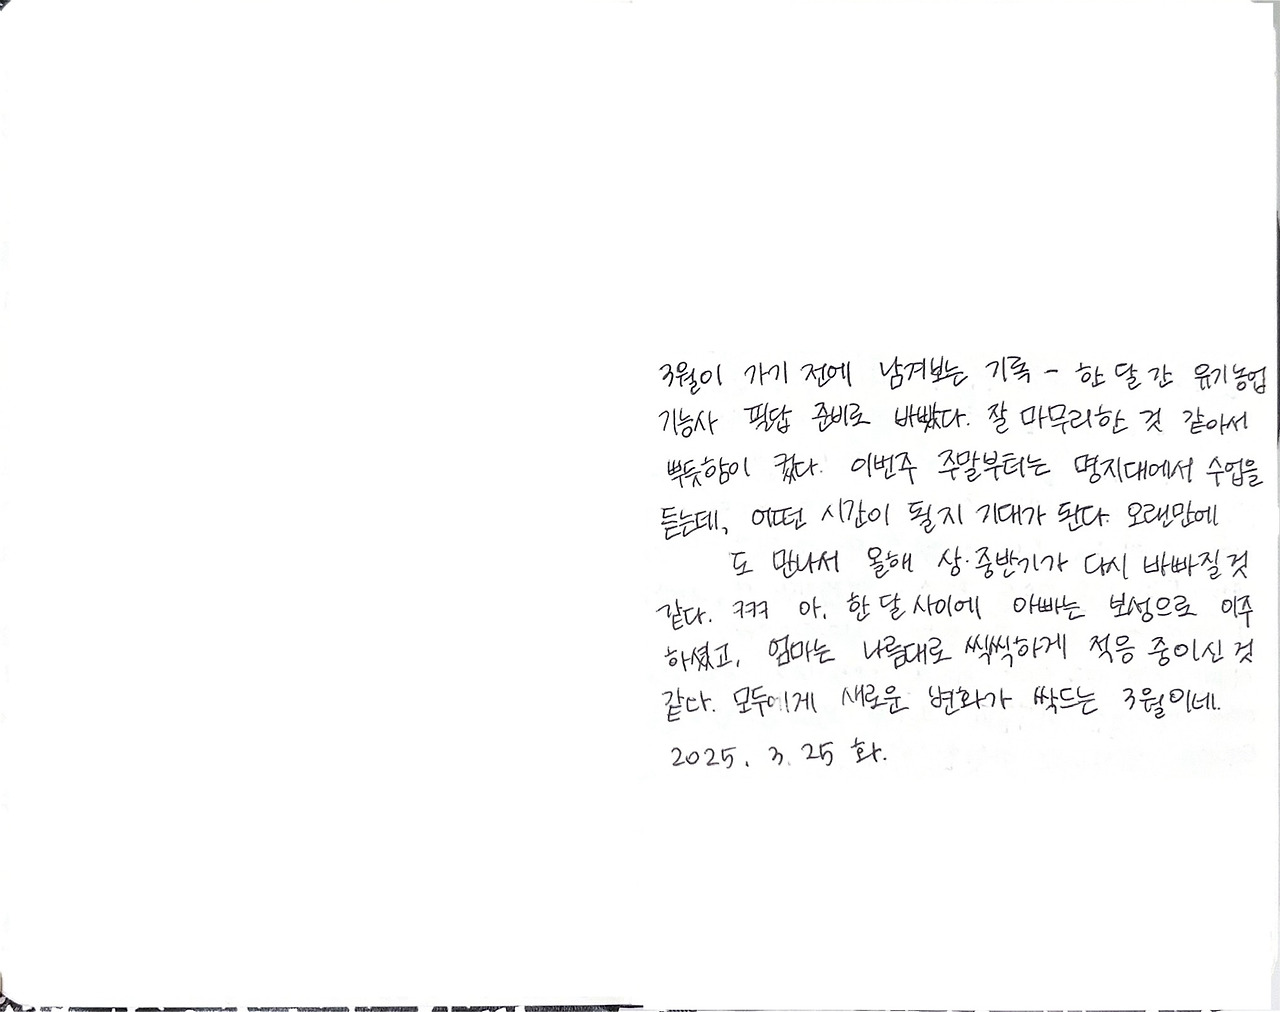 3월이 가기 전에 남겨보는 기록 - 한 달 간 유기농업
기능사 필답 준비로 바빴다. 잘 마무리한 것 같아서
뿌듯함이 컸다. 이번주 주말부터는 명지대에서 수업을
듣는데, 어떤 시간이 될지 기대가 된다. 오랜만에
도 만나서 올해 상·중반기가 다시 바빠질 것
같다. ㅋㅋㅋ 아, 한 달 사이에 아빠는 보성으로 이주
하셨고, 엄마는 나름대로 씩씩하게 적응 중이신 것
같다. 모두에게 새로운 변화가 싹트는 3월이네.
2025. 3. 25 화.